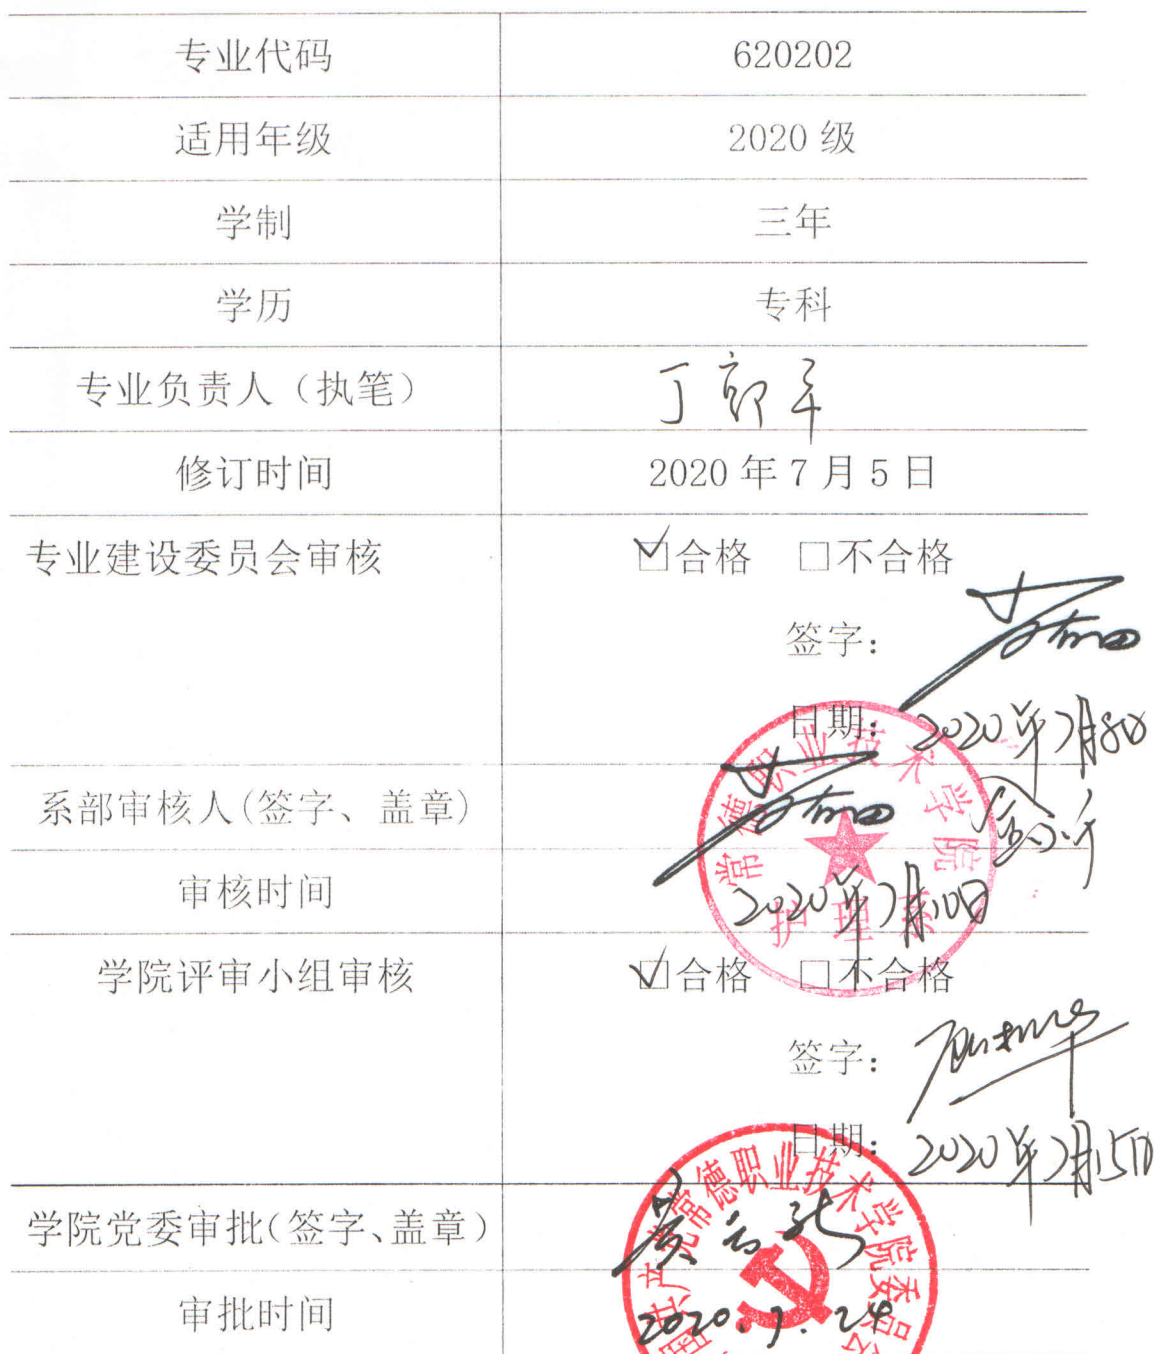 专业代码 620202
适用年级 2020 级
学制 三年
学历 专科
专业负责人（执笔） 丁郭平
修订时间 2020 年 7 月 5 日
专业建设委员会审核 ☑合格 □不合格
签字：
日期： 2020年7月8日
常德职业技术学院
系部审核人(签字、盖章)
审核时间 2020年7月10日
护理系
学院评审小组审核 ☑合格 □不合格
签字：
日期： 2020年7月15日
学院党委审批(签字、盖章)
常德职业技术学院委员会
审批时间 2020.7.24